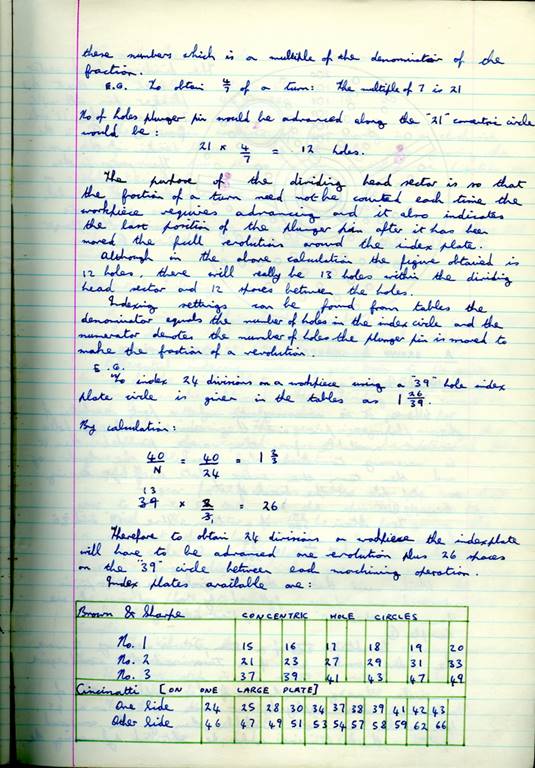 these numbers which is a multiple of the denominator of the
fraction.
E.G. To obtain 4/7 of a turn: The multiple of 7 is 21
No of holes plunger pin would be advanced along the "21" concentric circle
would be:
21 × 4/7 = 12 holes.
The purpose of the dividing head sector is so that
the fraction of a turn need not be counted each time the
workpiece requires advancing and it also indicates
the last position of the plunger pin after it has been
moved the full revolutions around the index plate.
Although in the above calculation the figure obtained is
12 holes, there will really be 13 holes within the dividing
head sector and 12 spaces between the holes.
Indexing settings can be found from tables the
denominator equals the number of holes in the index circle and the
numerator denotes the number of holes the plunger pin is moved to
make the fraction of a revolution.
E.G.
To index 24 divisions on a workpiece using a "39" hole index
plate circle is given in the tables as 1 26/39.
By calculation:
40/N = 40/24 = 1 2/3
13
39 × 2/3 1 = 26
Therefore to obtain 24 divisions on workpiece the indexplate
will have to be advanced one revolution plus 26 spaces
on the "39" circle between each machining operation.
Index plates available are:
Brown & Sharpe CONCENTRIC HOLE CIRCLES
No. 1 15 16 17 18 19 20
No. 2 21 23 27 29 31 33
No. 3 37 39 41 43 47 49
Cincinatti [ON ONE LARGE PLATE]
One Side 24 25 28 30 34 37 38 39 41 42 43
Other Side 46 47 49 51 53 54 57 58 59 62 66